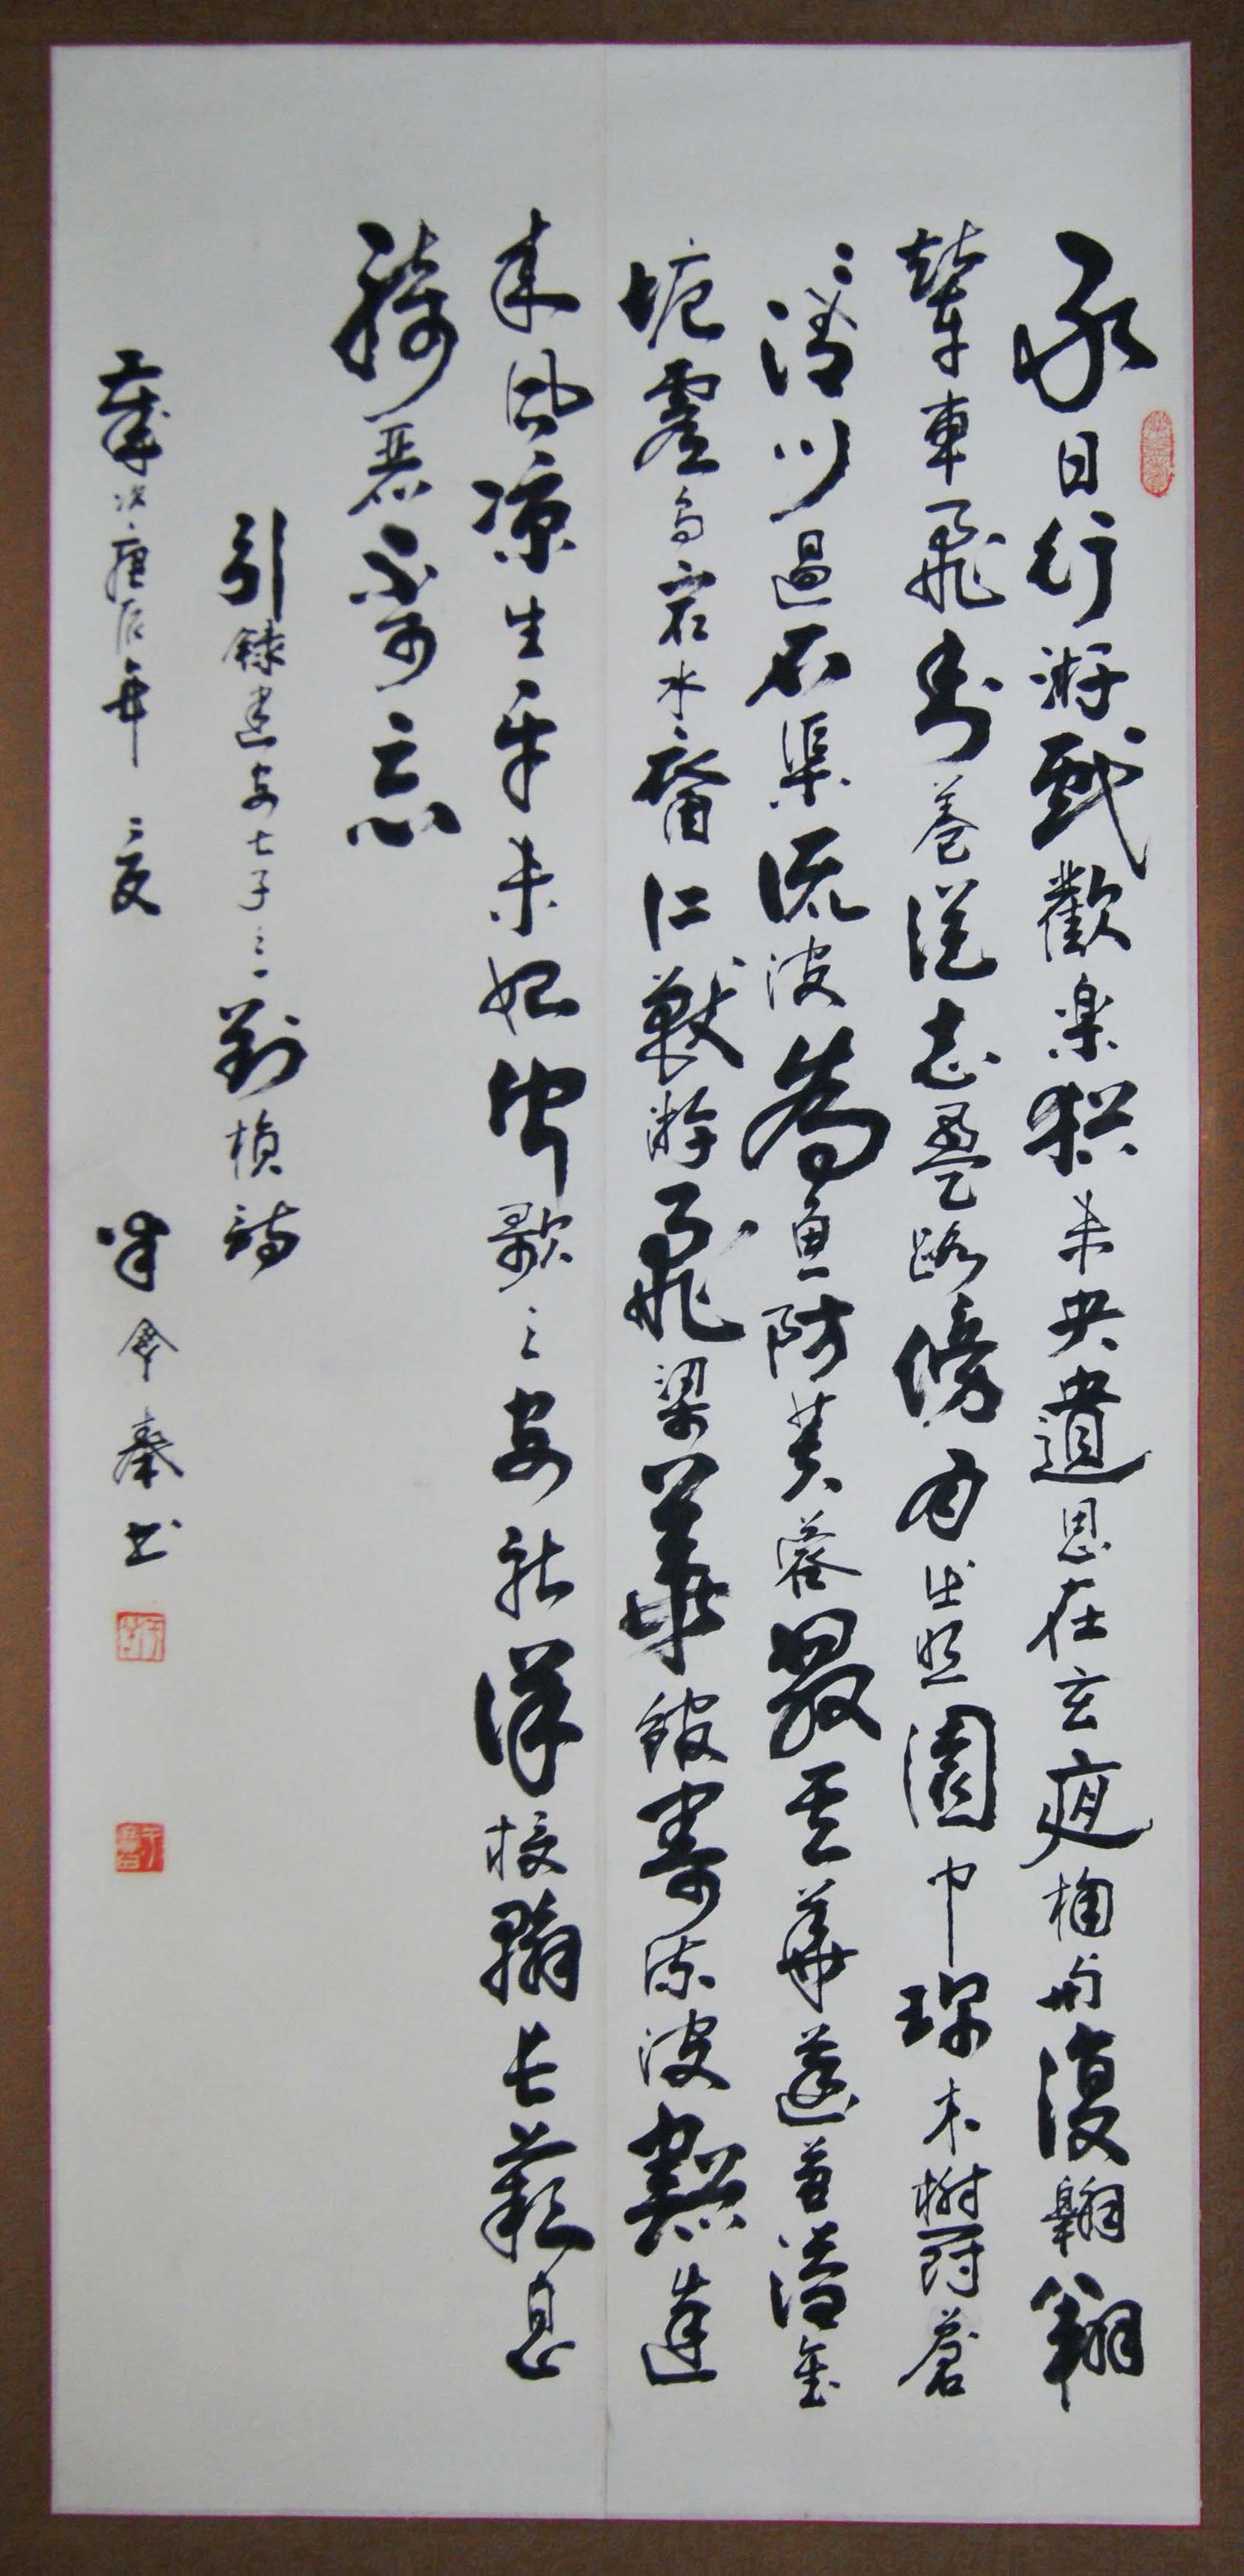 永日行游戲歡楽猶未央遺思在玄夜相与復翱翔
輦車飛素蓋從者盈路傍月出照園中珍木鬱蒼
々清川過石渠流波為魚防芙蓉散其華菡萏溢金
塘靈鳥宿水裔仁獸游飛梁華館寄流波豁達
来風凉生平未始聞歌之安能詳投翰長歎息
綺麗不可忘
引録建安七子之一劉楨詩
歲次庚辰年之夏 書